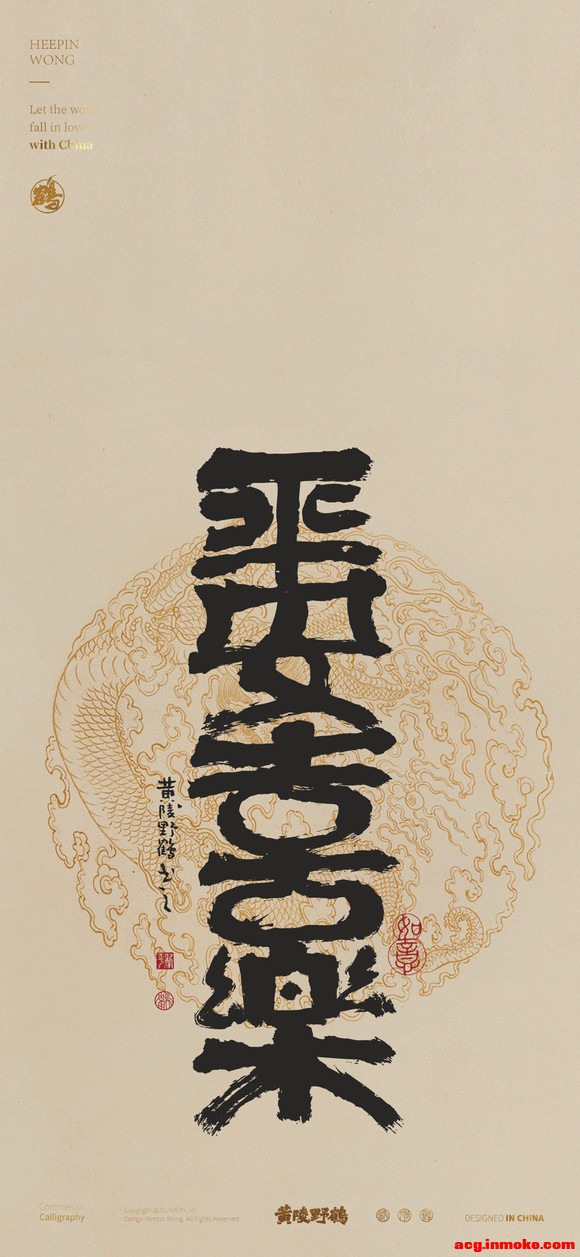 HEEPIN
WONG
Let the world
fall in love
with China
鶴
平安喜樂
黄陵野鶴
如意
Commercial
Calligraphy
Design Heepin Wong, All Rights Reserved
黄陵野鶴
DESIGNED IN CHINA
acg.inmoke.com